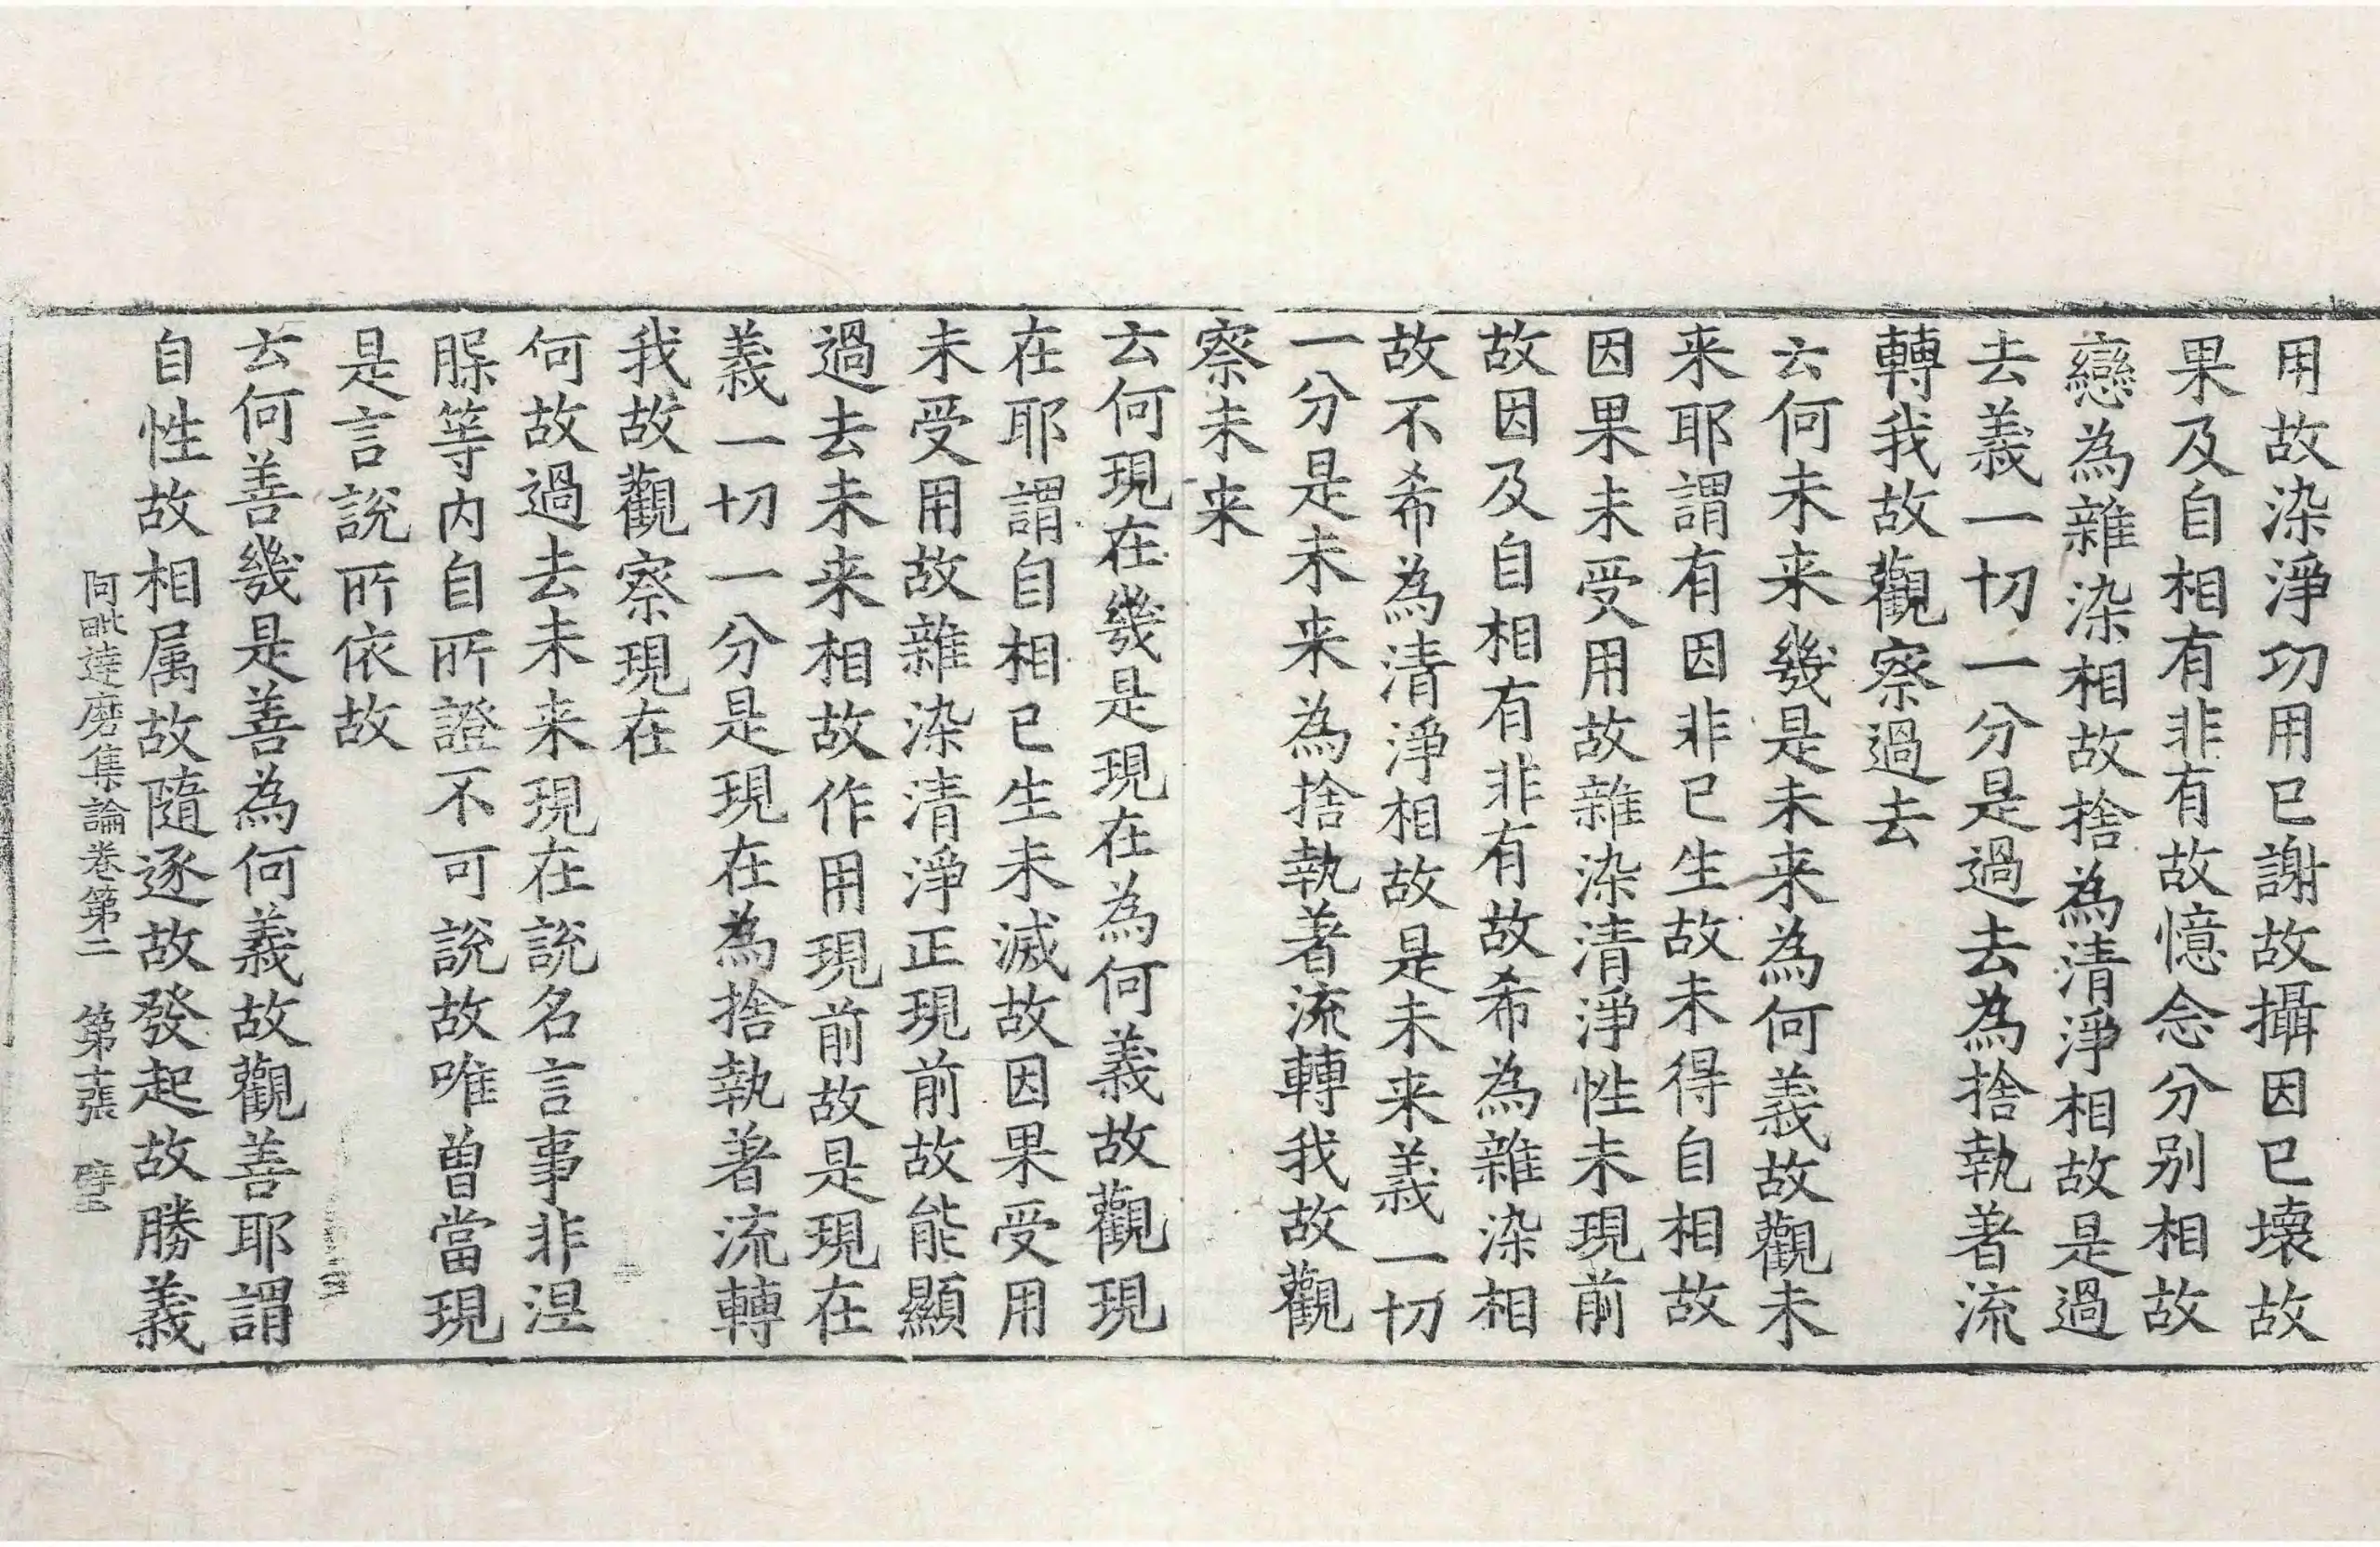 用故染淨功用已謝故攝因已壞故
果及自相有非有故憶念分別相故
戀為雜染相故捨為清淨相故是過
去義一切一分是過去為捨執著流
轉我故觀察過去
云何未来幾是未来為何義故觀未
来耶謂有因非已生故未得自相故
因果未受用故雜染清淨性未現前
故因及自相有非有故希為雜染相
故不希為清淨相故是未来義一切
一分是未来為捨執著流轉我故觀
察未来
云何現在幾是現在為何義故觀現
在耶謂自相已生未滅故因果受用
未受用故雜染清淨正現前故能顯
過去未来相故作用現前故是現在
義一切一分是現在為捨執著流轉
我故觀察現在
何故過去未来現在說名言事非涅
脲等内自所證不可說故唯曽當現
是言說所依故
云何善幾是善為何義故觀善耶謂
自性故相属故隨逐故發起故勝義
阿毗達磨集論卷第二　第十張　璧